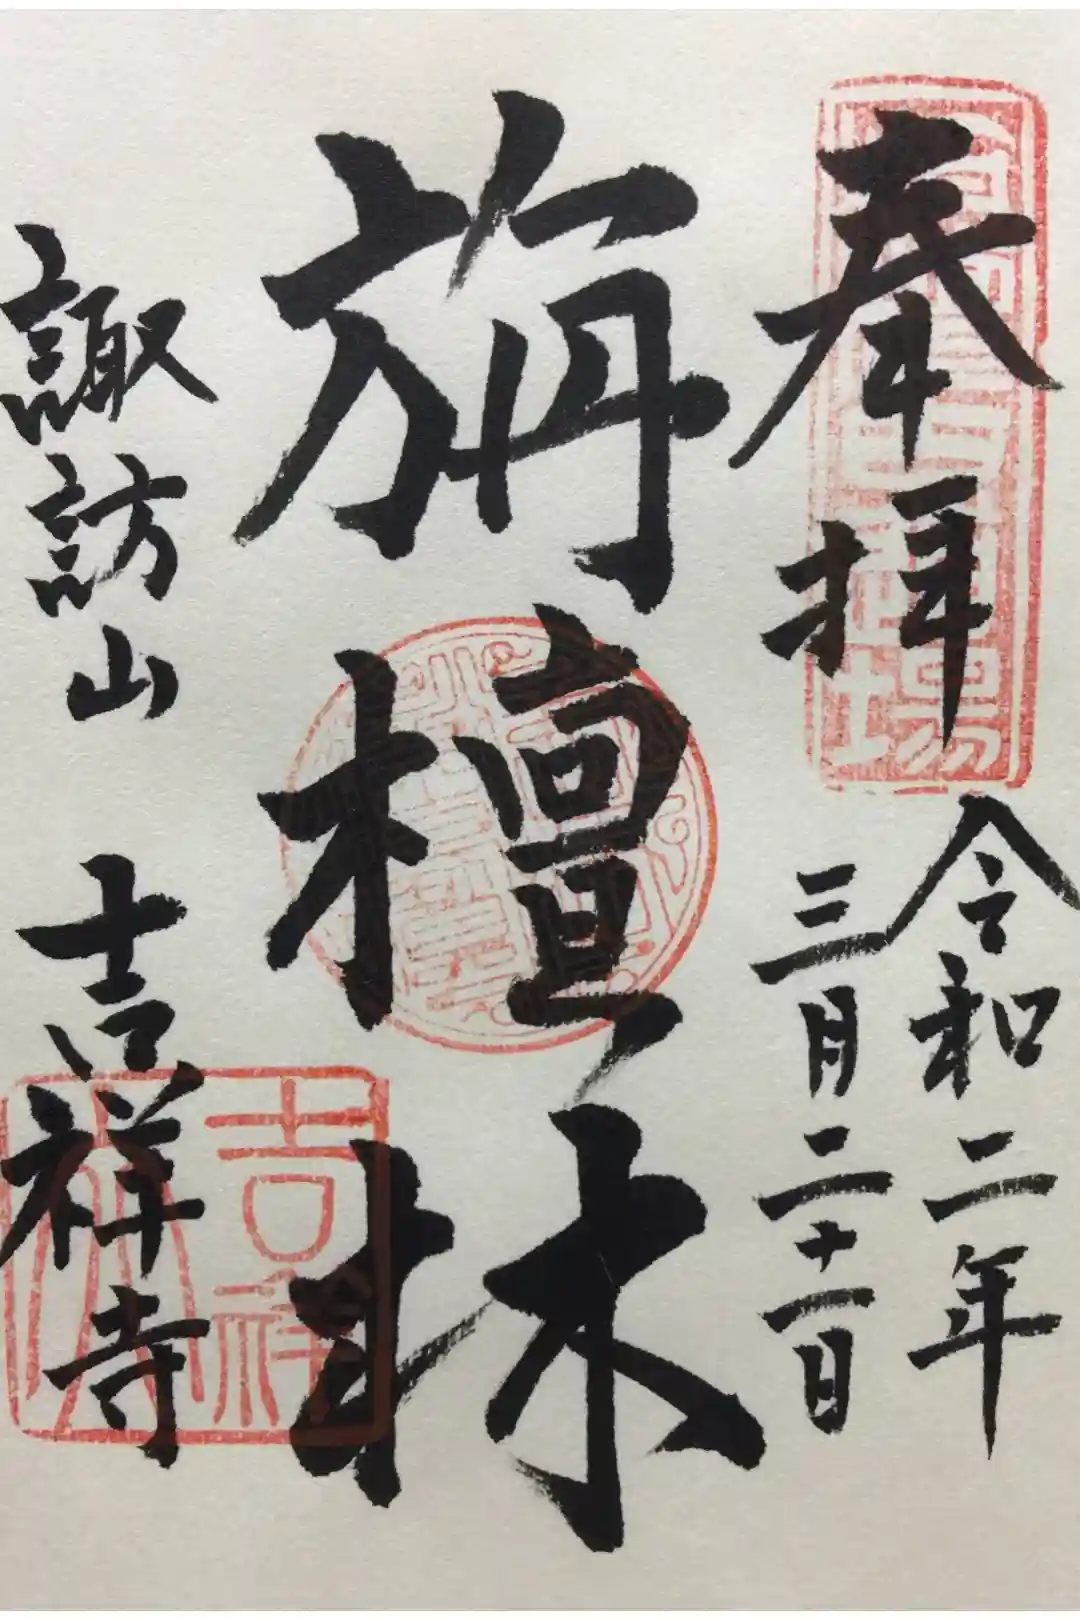 奉拝
令和二年
三月二十二日
旃檀林
諏訪山 吉祥寺